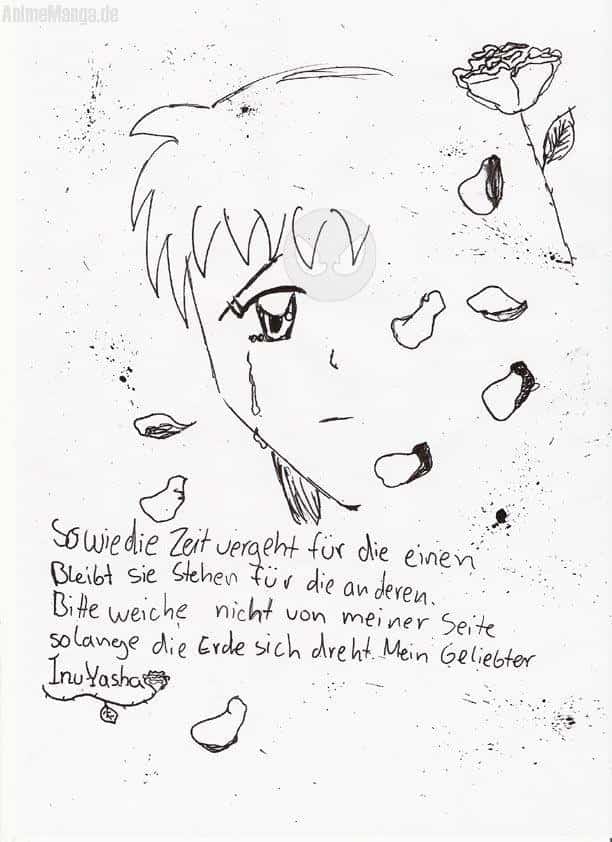 AnimeManga.de
So wie die Zeit vergeht für die einen
Bleibt sie stehen für die anderen.
Bitte weiche nicht von meiner Seite
solange die Erde sich dreht. Mein Geliebter
InuYasha